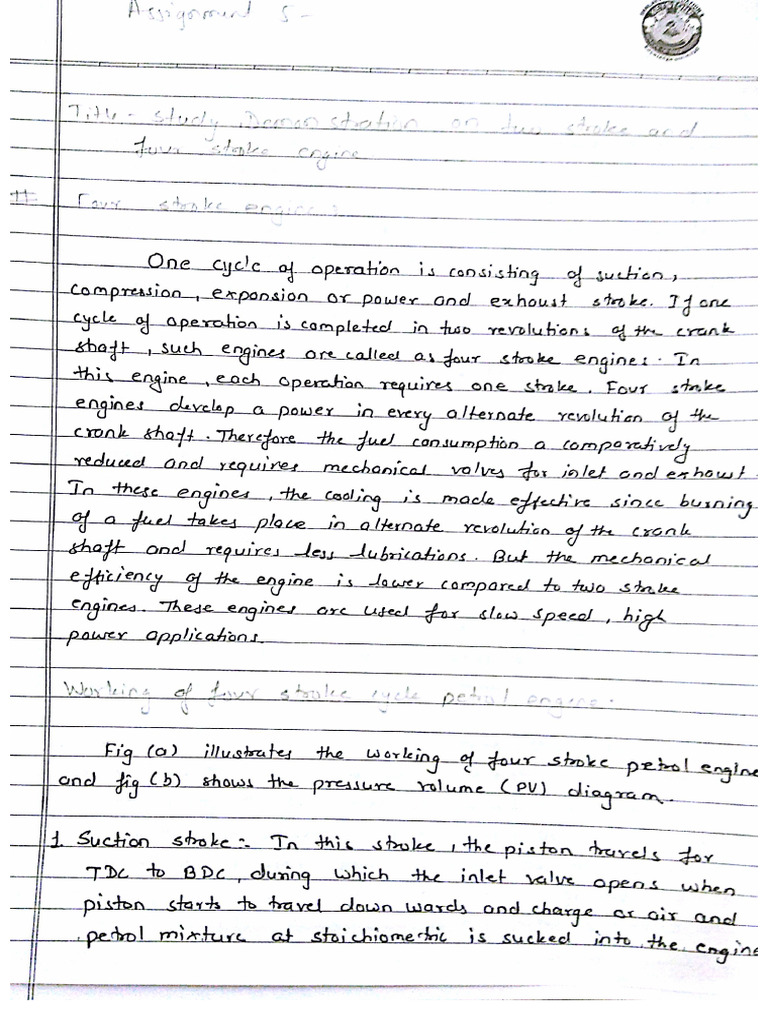 Assignment 5 -
Title - Study Demonstration on two stroke and
four stroke engine
# Four stroke engine:
One cycle of operation is consisting of suction,
compression, expansion or power and exhaust stroke. If one
cycle of operation is completed in two revolutions of the crank
shaft, such engines are called as four stroke engines. In
this engine, each operation requires one stroke. Four stroke
engines develop a power in every alternate revolution of the
crank shaft. Therefore the fuel consumption a comparatively
reduced and requires mechanical valves for inlet and exhaust.
In these engines, the cooling is made effective since burning
of a fuel takes place in alternate revolution of the crank
shaft and requires less lubrications. But the mechanical
efficiency of the engine is lower compared to two stroke
engines. These engines are used for slow speed, high
power applications.
Working of four stroke cycle petrol engine.
Fig (a) illustrates the working of four stroke petrol engine
and fig (b) shows the pressure volume (PV) diagram.
1. Suction stroke:- In this stroke, the piston travels for
TDC to BDC, during which the inlet valve opens when
piston starts to travel down wards and charge or air and
petrol mixture at stoichiometric is sucked into the engine